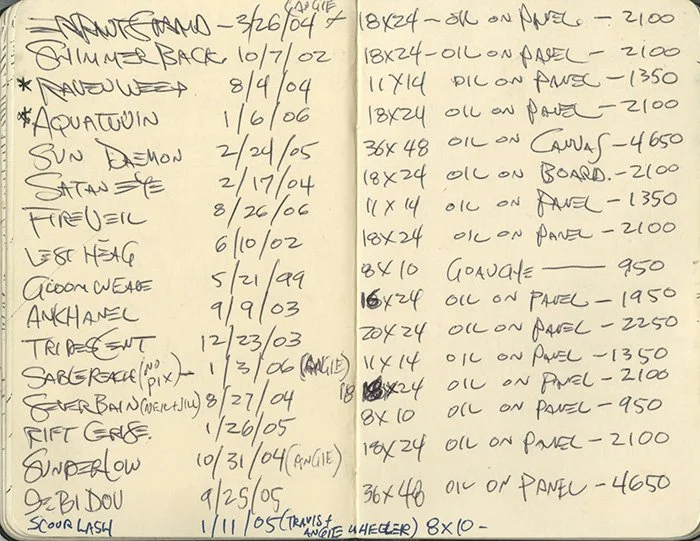 ANGIE
3/26/04 + 18X24 - OIL ON PANEL - 2100
SHIMMERBACK 10/7/02 18X24 - OIL ON PANEL - 2100
* RAVENWEED 8/4/04 11X14 OIL ON PANEL - 1350
* AQUATWIN 1/6/06 18X24 OIL ON PANEL - 2100
SUN DAEMON 2/24/05 36X48 OIL ON CANVAS - 4650
SATAN EYE 2/17/04 18X24 OIL ON BOARD. - 2100
FIREVEIL 8/26/06 11X14 OIL ON PANEL - 1350
6/10/02 18X24 OIL ON PANEL - 2100
5/21/99 8X10 GOAUCHE — 950
ANKHANEL 9/9/03 16X24 OIL ON PANEL - 1950
TRIDESCENT 12/23/03 20X24 OIL ON PANEL - 2250
SABLEREACH (NO PIX) - 1/3/06 (ANGIE) 11X14 OIL ON PANEL - 1350
SEVERBAIN (NEIL+JILL) 8/27/04 18 X24 OIL ON PANEL - 2100
RIFT 1/26/05 8X10 OIL ON PANEL - 950
SUNDERLOW 10/31/04 (ANGIE) 18X24 OIL ON PANEL - 2100
9/25/05 36X48 OIL ON PANEL - 4650
SCOURLASH 1/11/05 (TRAVIS + ANGIE WHEELER) 8X10 -